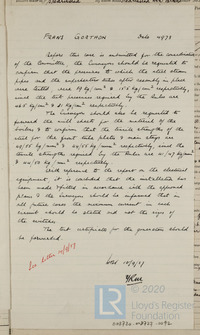 FRANS GORTHON Gote 4973
Before this case is submitted for the consideration
of the Committee, the Surveyors should be requested to
confirm that the pressures to which the steel steam
pipes and the superheater tubes after assembly in place
were tested were 79 kg/cm² & 156 kg/cm² respectively,
since the test pressures required by the Rules are
The Surveyors should also be requested to
forward the mill sheets for the material of the
boilers & to confirm that the tensile strength of the
steel for the front tube plate & main stays are
respectively, since the
tensile strengths required by the Rules are 41/47 kg/mm²
& 44/50 kg/mm² respectively.
With reference to the report on the electrical
equipment, it is considered that the installation has
been made & fitted in accordance with the approved
plans & the Surveyors should be informed that in
all future cases the maximum current in each
circuit should be stated and not the size of
the switches.
The test certificate for the generators should
be forwarded.
© 2020
Lloyd's Register
Foundation